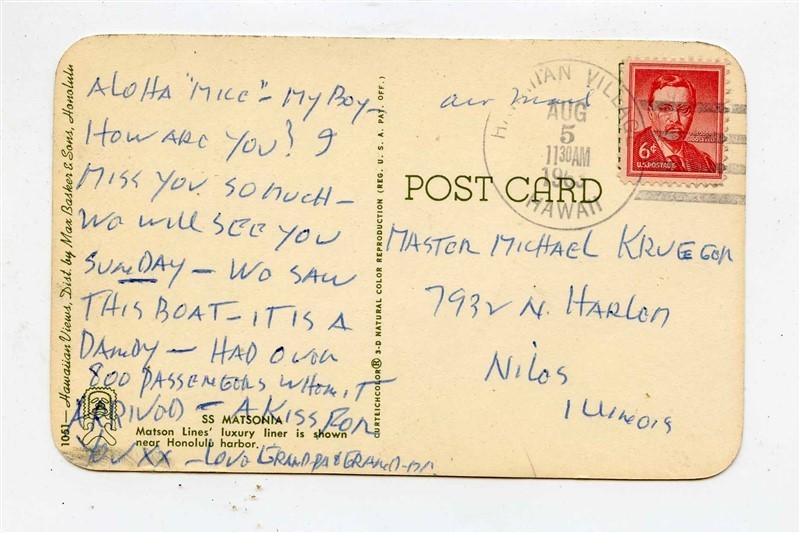 ALOHA "MIKE" - MY BOY -
HOW ARE YOU? I
MISS YOU SO MUCH -
WE WILL SEE YOU
SUNDAY - WE SAW
THIS BOAT - IT IS A
DANDY - HAD OVER
800 PASSENGERS WHEN IT
ARRIVED - A KISS FOR
YOU XX - LOVE GRANDPA & GRAND-MA
1051 — Hawaiian Views, Dist. by Max Basker & Sons, Honolulu
SS MATSONIA
Matson Lines' luxury liner is shown
near Honolulu harbor.
CURTEICHCOLOR® 3-D NATURAL COLOR REPRODUCTION (REG. U. S. A. PAT. OFF.)
air mail
POST CARD
HAWAIIAN VILLAGE
AUG
5
1130AM
HAWAII
6¢
U.S. POSTAGE
MASTER MICHAEL KRUEGER
7932 N. HARLEM
NILES
ILLINOIS